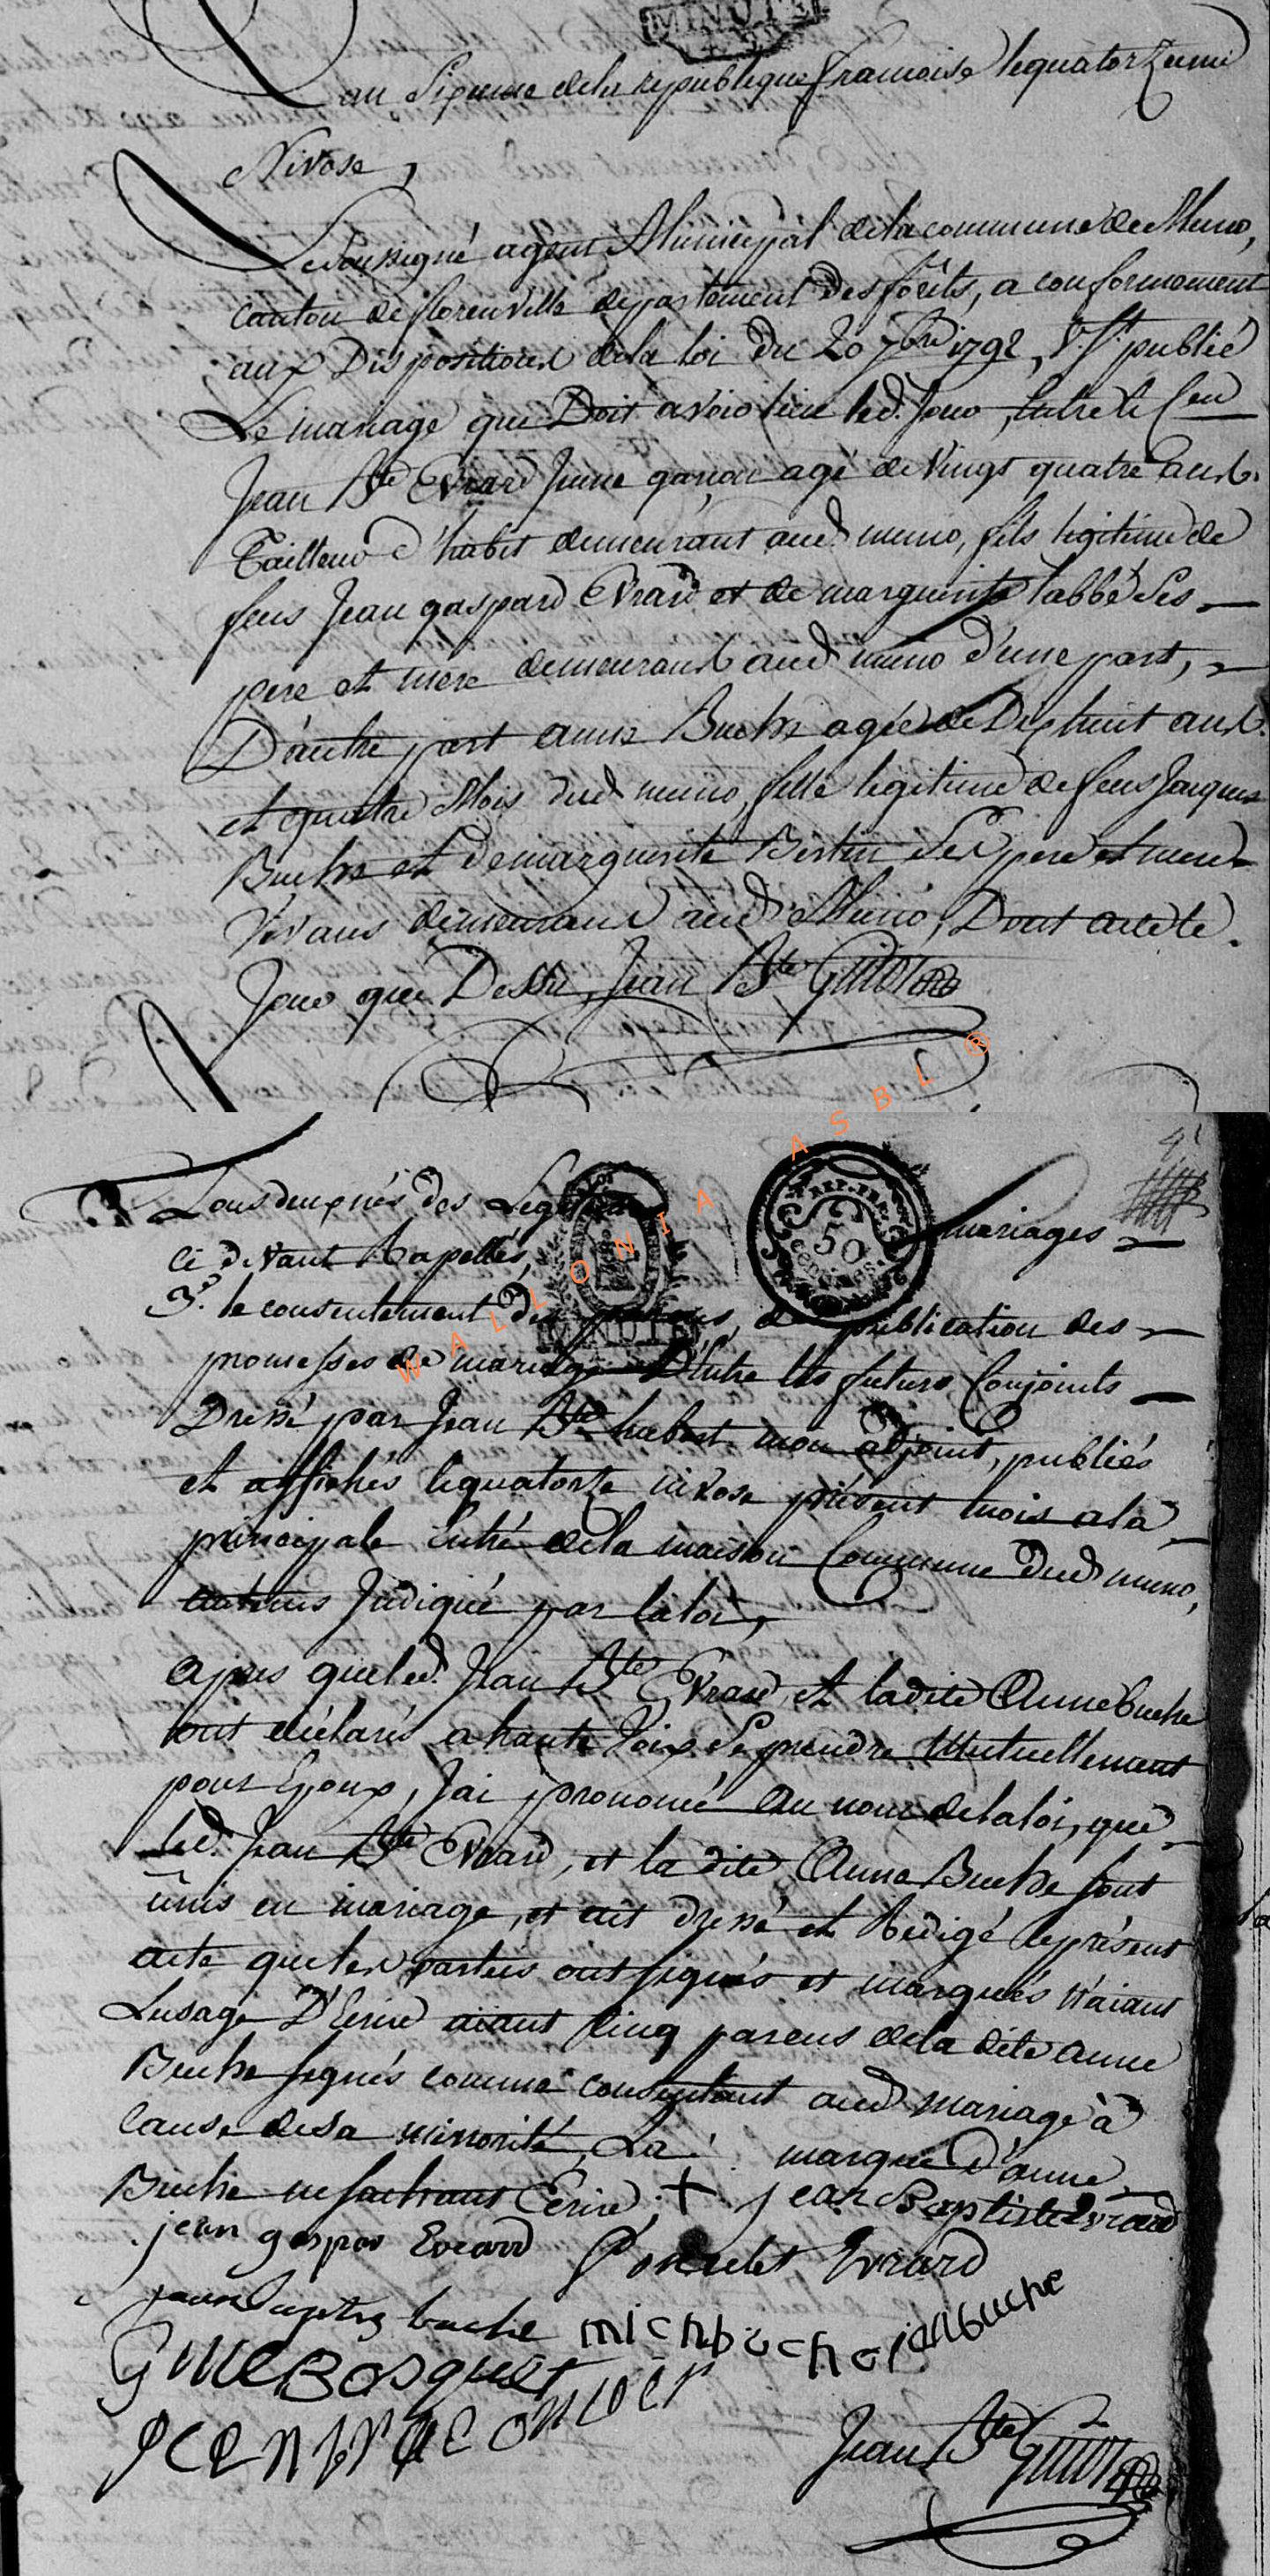 MINUTE
au Sixieme dela republique francoise le quatorzieme
Nivose,
Le Soussigné agent Municipal dela commune de Muno,
canton de florenville departement des forêts, a conformement
aux Dispositions dela loi du 20 7bre 1792, V. St. publié
Le mariage qui Doit avoir lieu led. Jour, Entre le Cen
Jean Bte Evrard Jeune garçon agé de Vingt quatre ans.
Tailleur d'habit demeurant aud. muno, fils legitime de
feus Jean gaspard Evrard et de marguerite labbé Ses
pere et mere demeurant aud muno d'une part,
D'autre part anne Buche agée de Dix huit ans.
et quatre Mois dud muno, fille legitime de feus Jacques
Buche et de marguerite Bertin Ses pere et mere
Vivans demeurans aud. Muno, Dont acte le
Jour que Dessu, Jean Bte Guiot
WALLONIA ASBL ®
Tous deux nés des Legitimes mariages
ci devant Rapellés,
REP. FRA. 50 centimes.
3°. le consentement des parens, de publication des
MINUTE
promesses de mariage D'Entre les futurs Conjoints
Dressé par Jean Bte hubert mon adjoint, publiés
et affichés le quatorze nivose présent mois a la
principale Entrée dela maison Commune dud muno,
Indiqué par la loi,
apres que led. Jean Bte Evrard et ladite Anne buche
ont déclarés a haute Voix Se prendre Mutuellement
pour Epoux, J'ai prononcé Au nom dela loi, que
led. Jean Bte Evrard, et la dite Anna Buche Sont
ûnis en mariage, et ait dressé et Redigé le présent
acte que les parties ont signés et marqués n'aiant
Lusage D'Ecrire aiant Cinq parens dela dite anne
Buche signés comme consentant aud mariage à
Cause desa minorité, La marque d'anne
Buche ne sachant Ecrire, + jean Baptiste Evrard
jean gaspar Evrard Poncelet Evrard
jean baptis buche mich buche jean buche
Gille Bosquet
Jean Bte Guiot